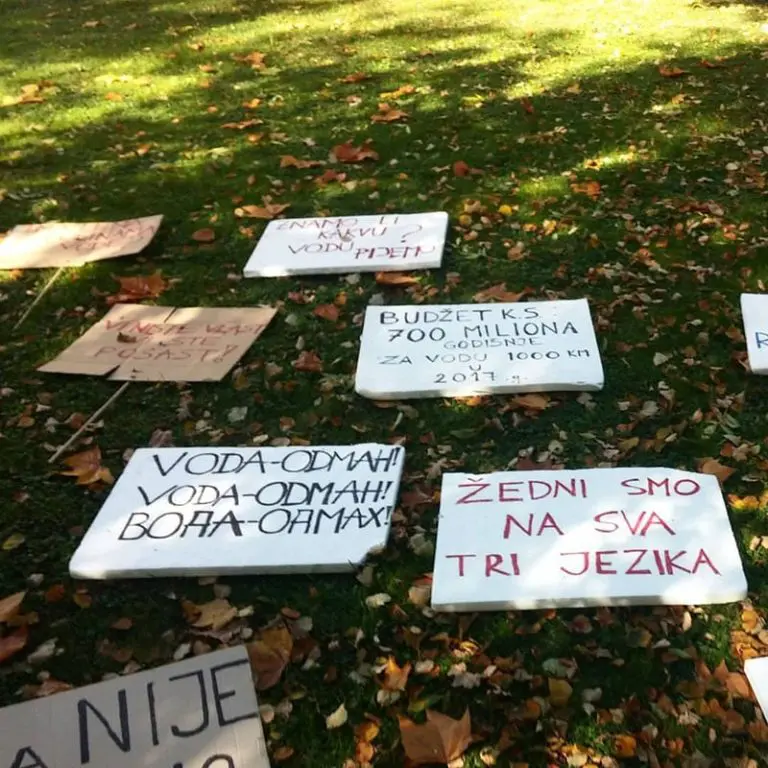 ZNAMO LI
KAKVU ?
VODU PIJEMO
VI NISTE VLAST
VI STE
POŠAST!
BUDŽET K.S.
700 MILIONA
GODIŠNJE
ZA VODU 1000 KM
U
2017.g.
VODA-ODMAH!
VODA-ODMAH!
ВОДА-ОДМАХ!
ŽEDNI SMO
NA SVA
TRI JEZIKA
NIJE